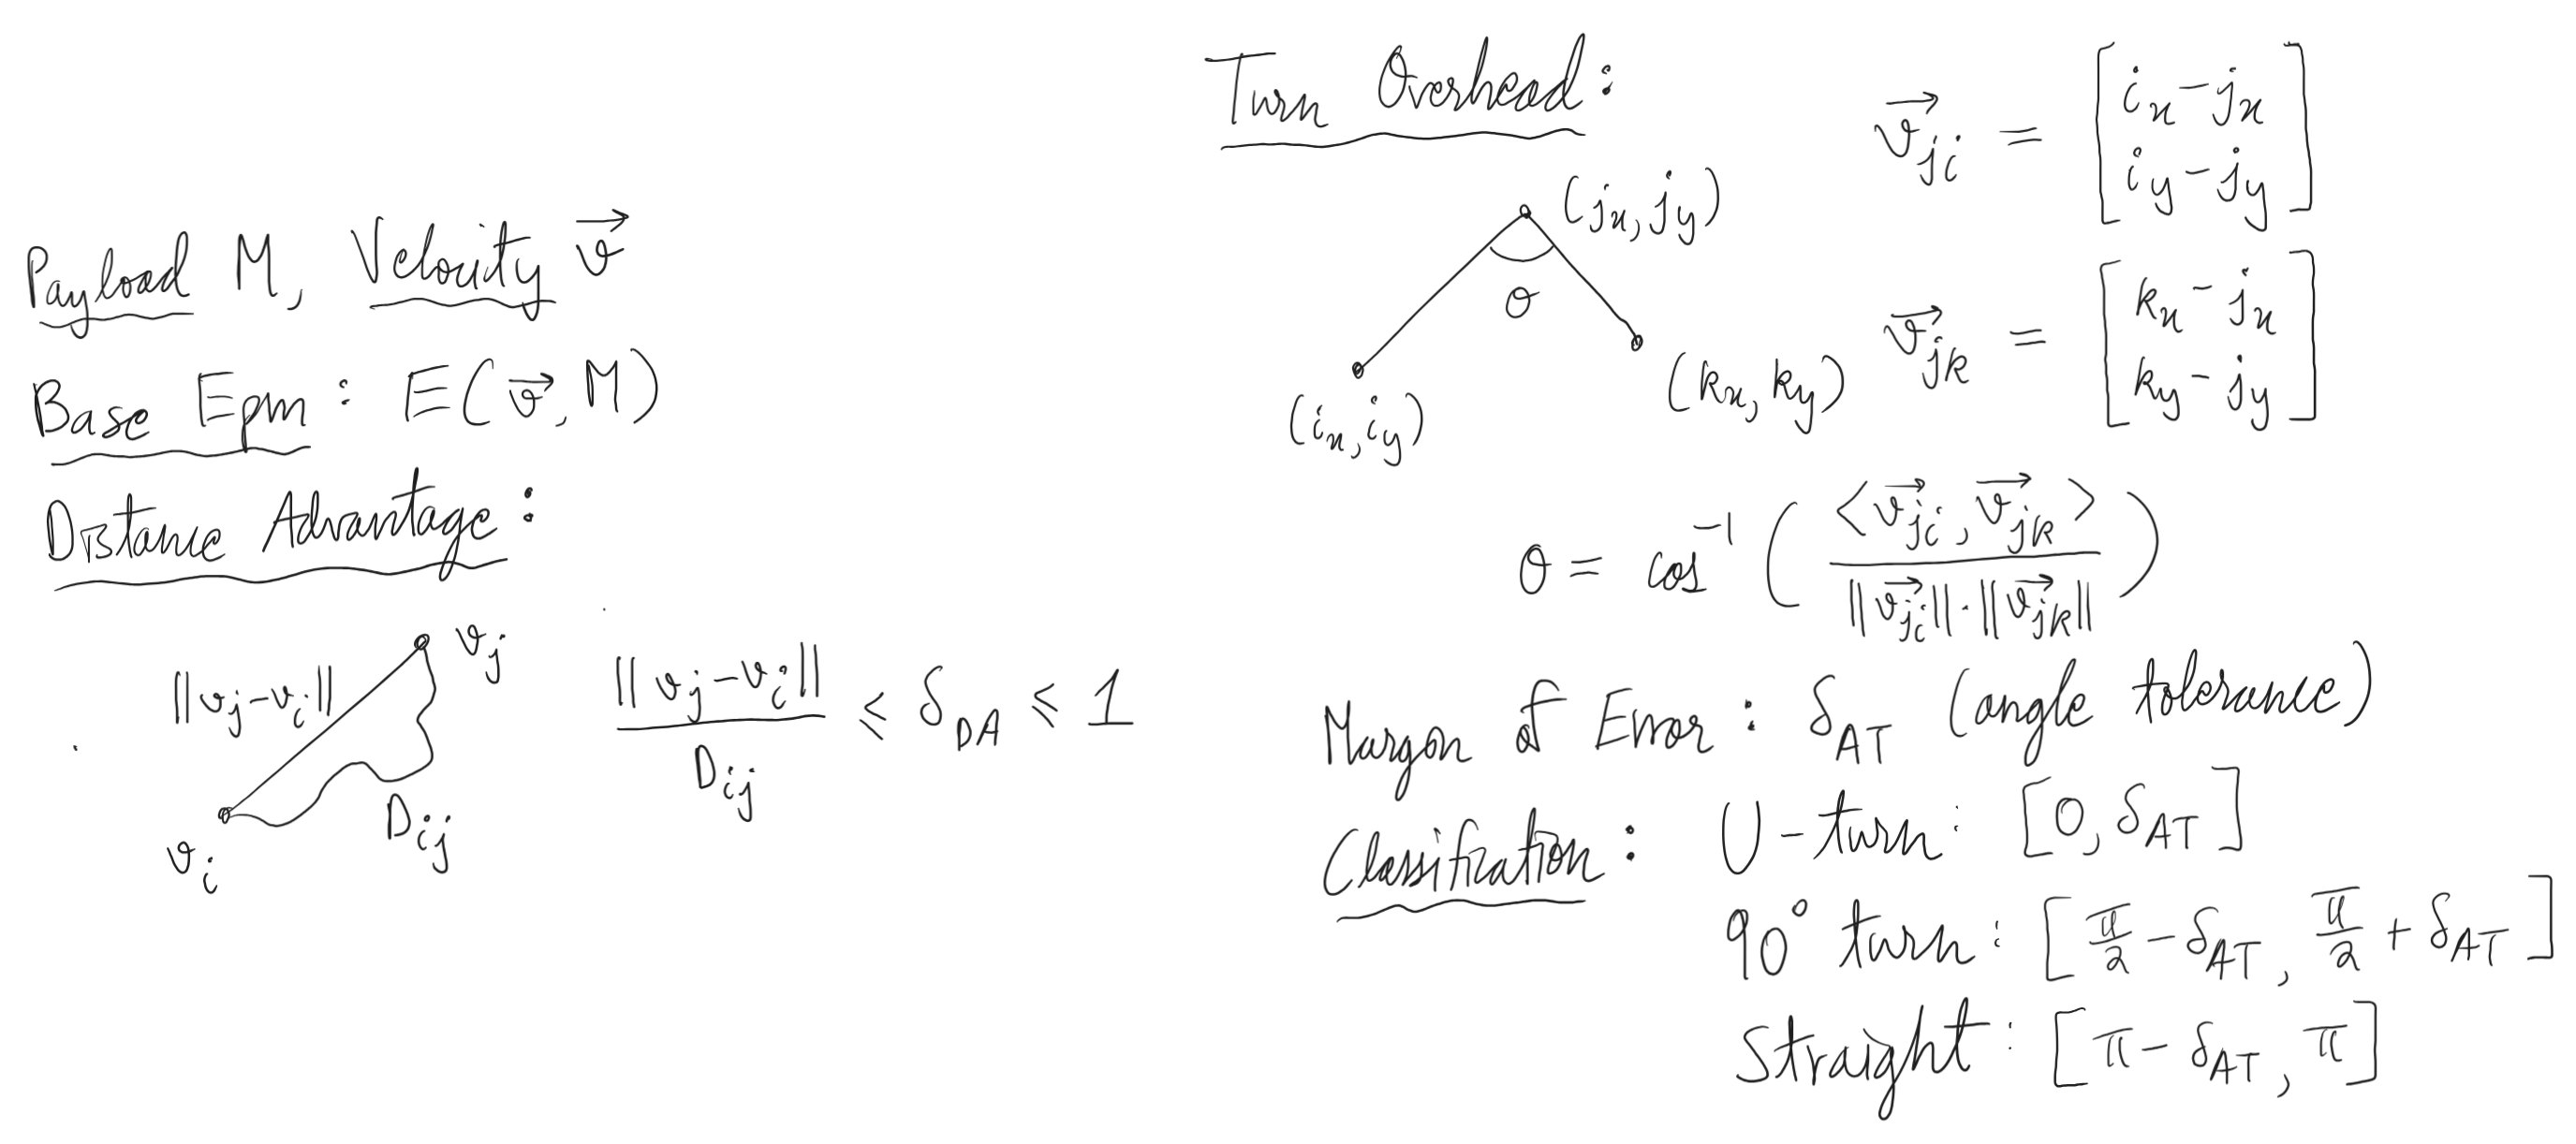 Payload M, Velocity v⃗
Base Epm : E(v⃗, M)
Distance Advantage :
‖vj−vi‖
vj
vi
Dij
‖vj−vi‖ / Dij ≤ δDA ≤ 1
Turn Overhead :
(jx, jy)
θ
(ix, iy)
(kx, ky)
v⃗ji = [ix−jx
iy−jy]
v⃗jk = [kx−jx
ky−jy]
θ = cos⁻¹ ( <v⃗ji, v⃗jk> / ‖v⃗ji‖·‖v⃗jk‖ )
Margin of Error : δAT (angle tolerance)
Classification : U-turn : [0, δAT]
90° turn : [π/2 − δAT, π/2 + δAT]
Straight : [π − δAT, π]